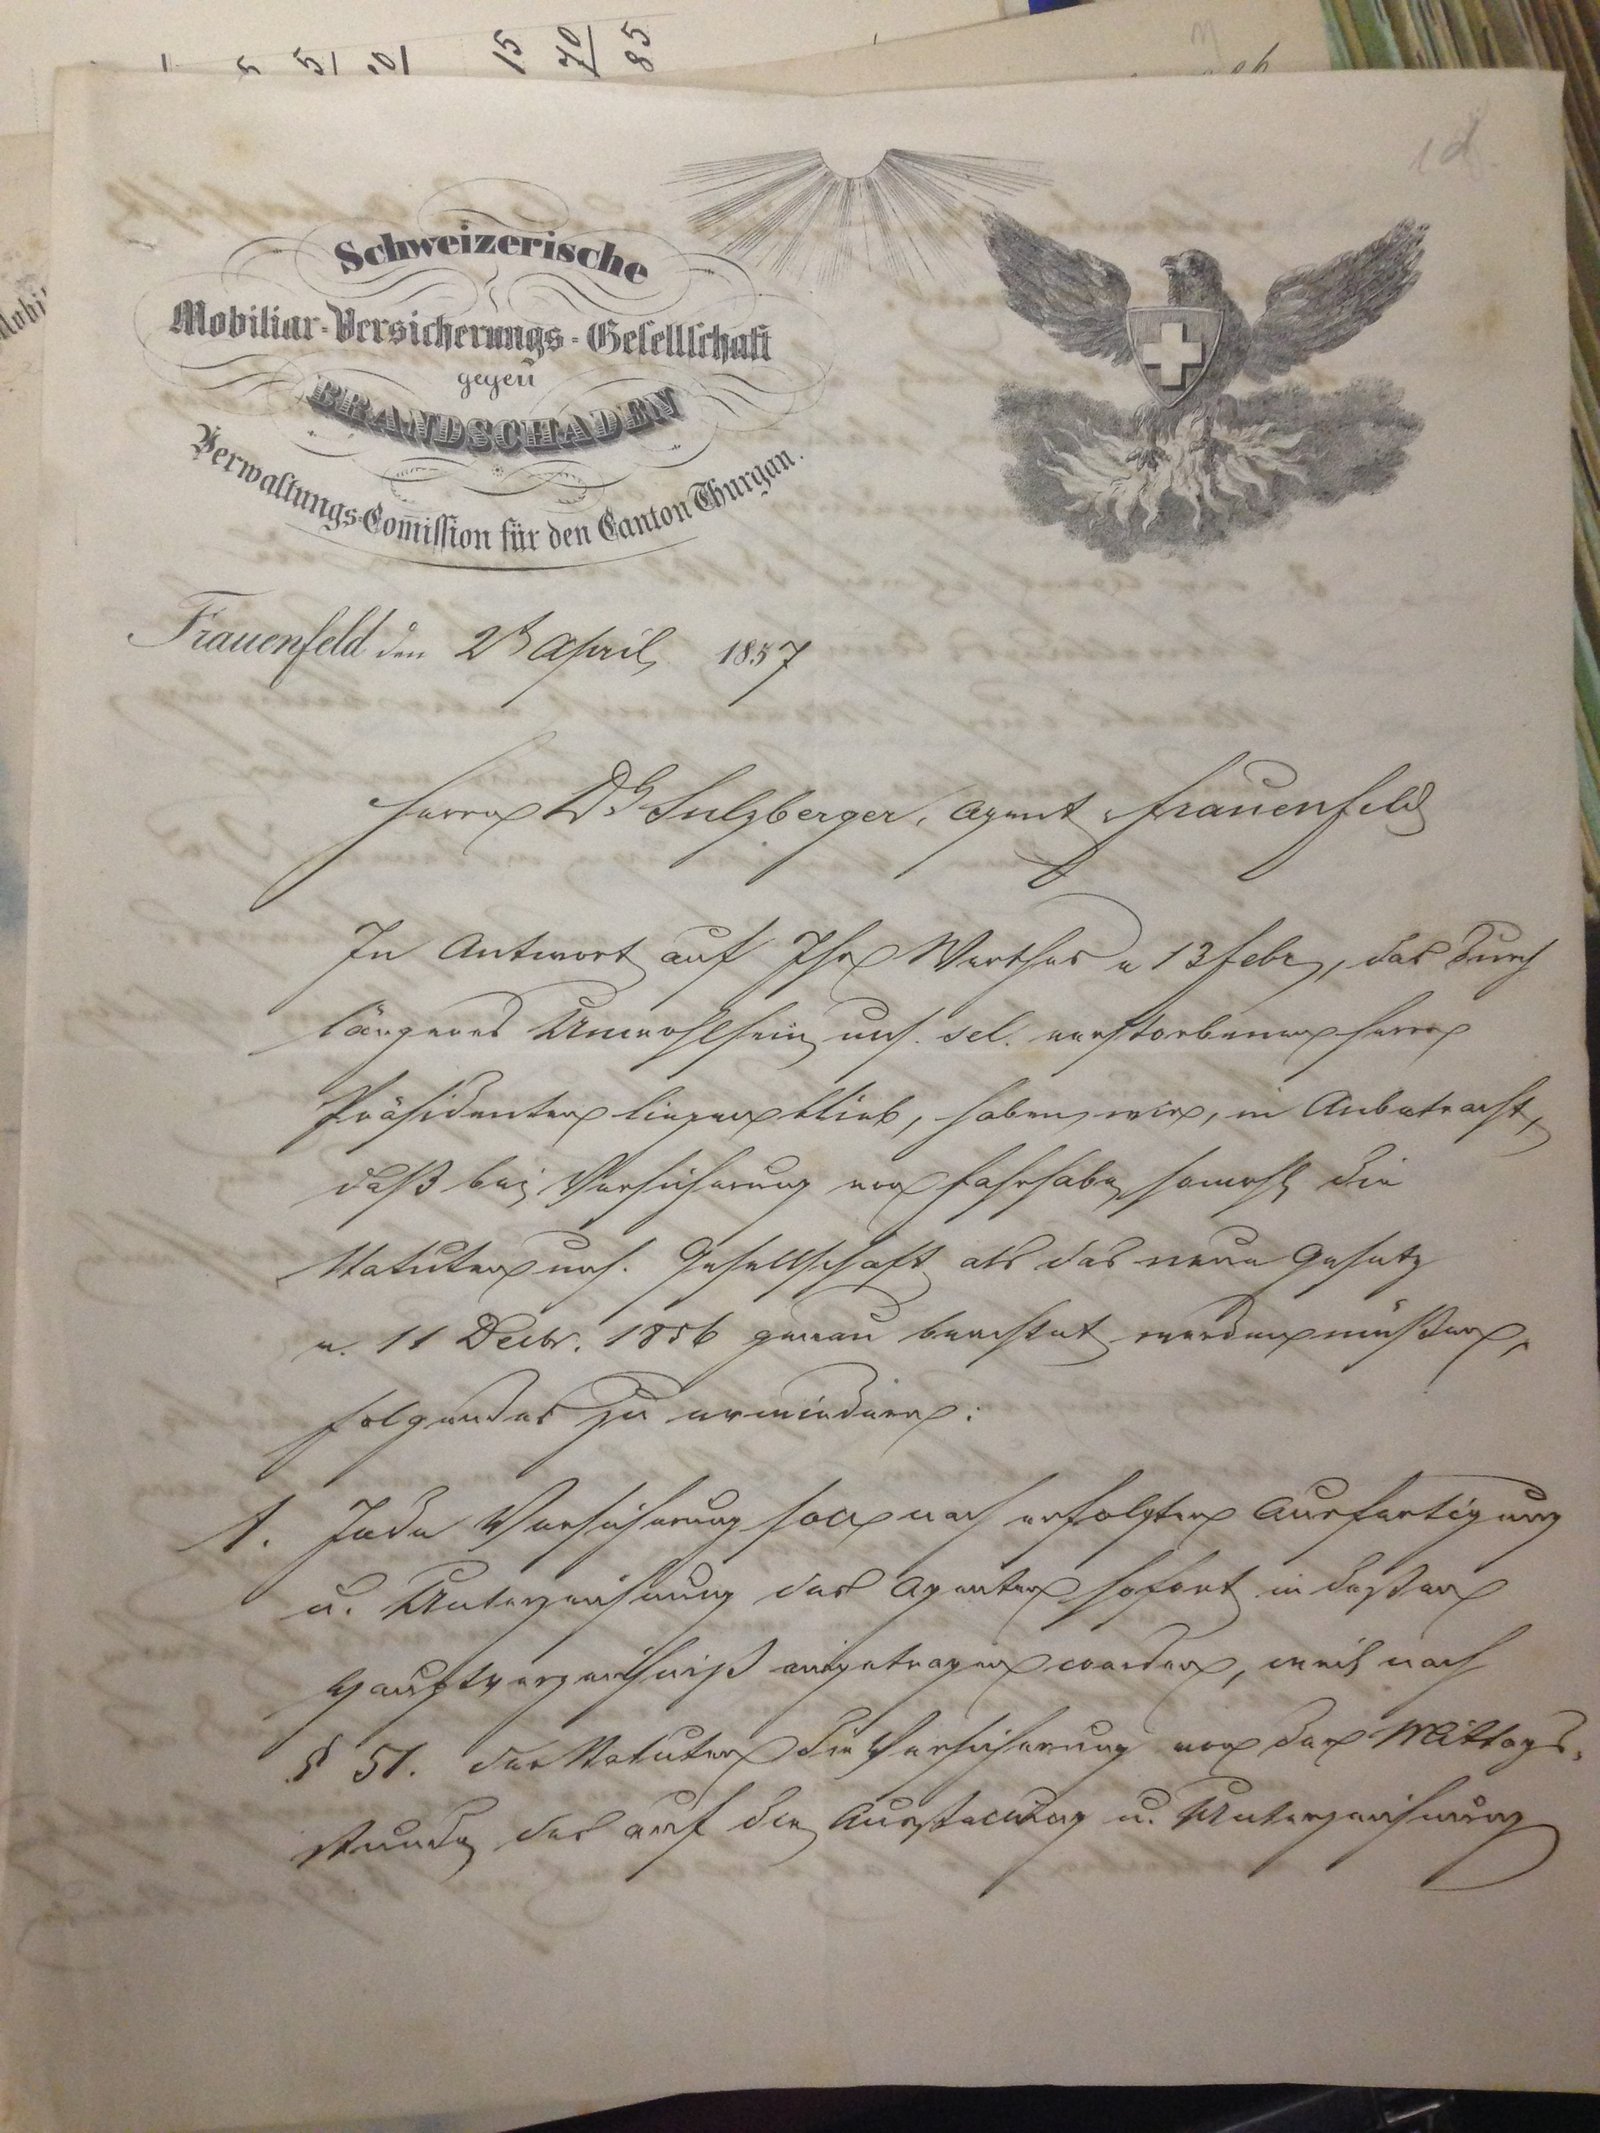 15
70
85
1d
Schweizerische
Mobiliar-Versicherungs-Gesellschaft
gegen
BRANDSCHADEN
Verwaltungs-Com̅ission für den Canton Thurgau.
Frauenfeld den 2t April 1857
Herrn Dr Sulzberger, Agent, Frauenfeld
In Antwort auf Ihr Werthes v 13 Febr, das durch
längeres Unwohlsein uns. sel. verstorbenen Herrn
Präsidenten liegen blieb, haben wir, in Anbetracht,
daß bei Versicherung von Fahrhabe sowohl die
Statuten uns. Gesellschaft als das neue Gesetz
v. 11 Decbr. 1856 genau beachtet werden müßen,
folgendes zu erwiedern:
1. Jede Versicherung soll nach erfolgter Ausfertigung
u. Unterzeichnung des Agenten sofort in deßen
Hauptverzeichniß eingetragen werden, weil nach
§ 51. der Statuten die Versicherung von der Mittags-
stunde des auf die Ausstellung u. Unterzeichnung